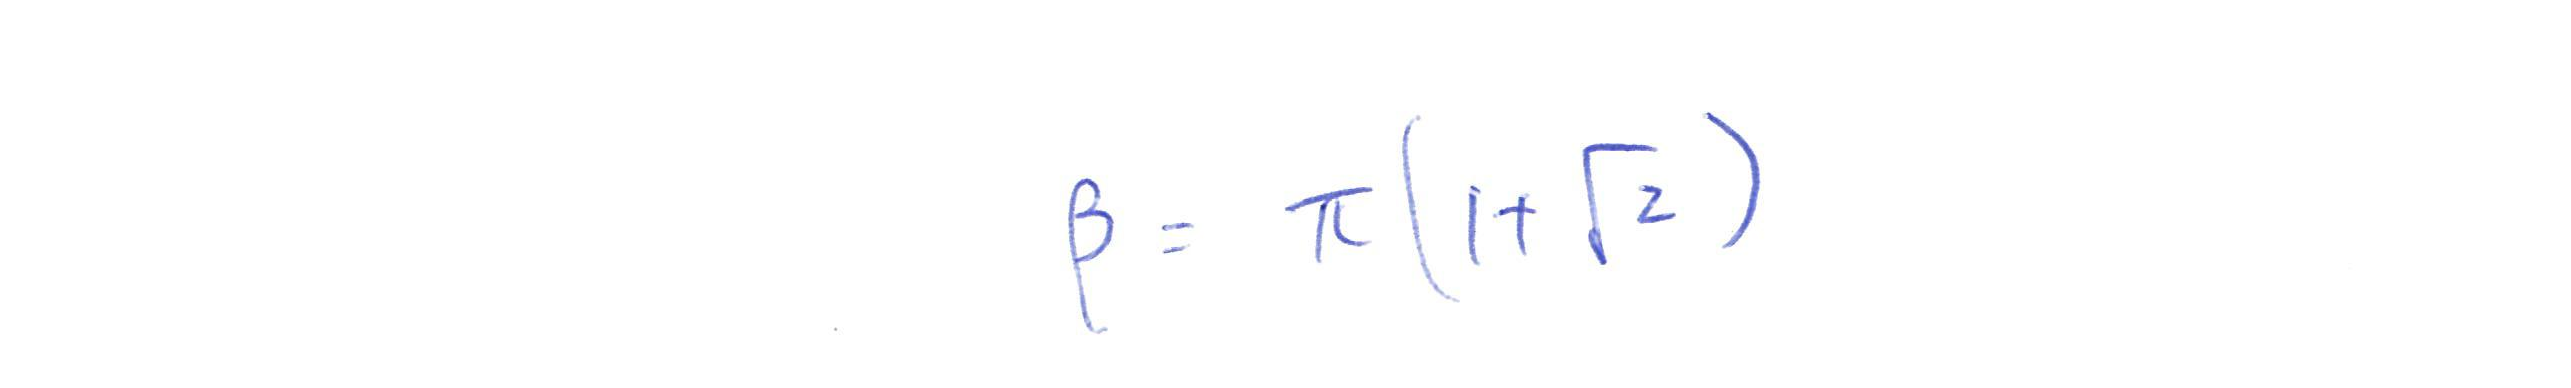 β = π(1+√2)